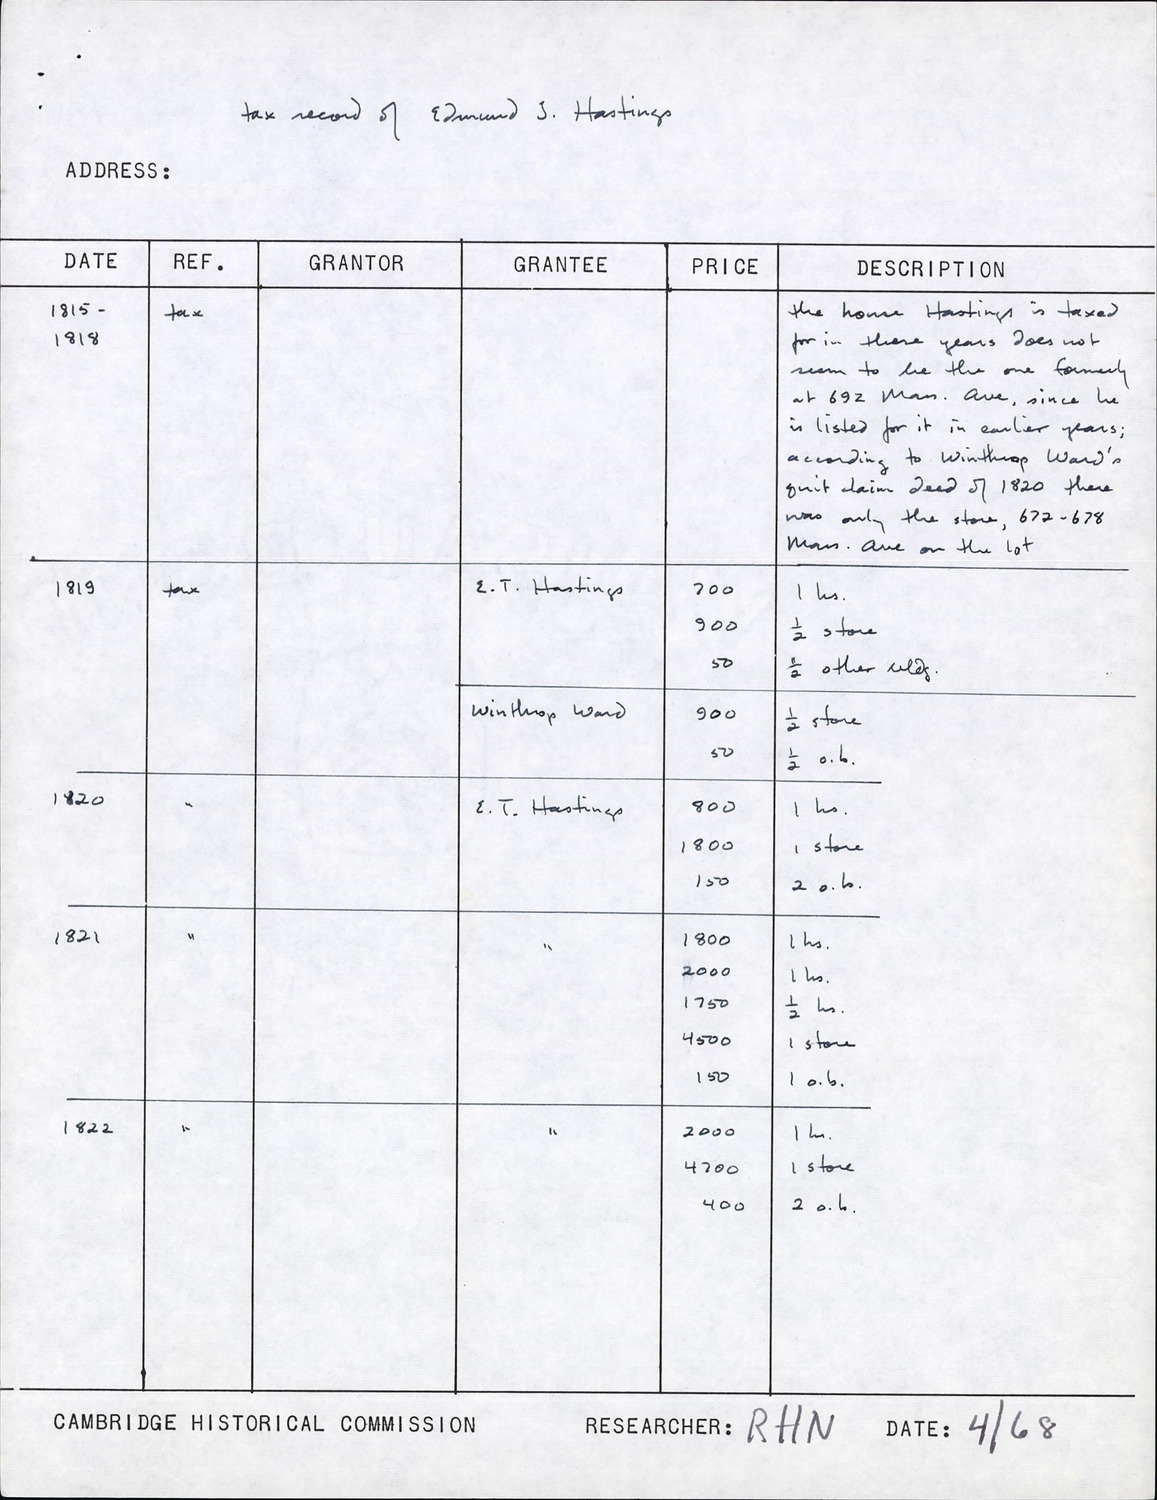 tax record of Edmund T. Hastings
ADDRESS:
DATE REF. GRANTOR GRANTEE PRICE DESCRIPTION
1815 - tax the house Hastings is taxed
1818 for in these years does not
seem to be the one formerly
at 692 Mass. Ave, since he
is listed for it in earlier years;
according to Winthrop Ward's
quit claim deed of 1820 there
was only the store, 672-678
Mass. Ave on the lot
1819 tax E.T. Hastings 700 1 hs.
900 1/2 store
50 1/2 other bldg.
Winthrop Ward 900 1/2 store
50 1/2 o.b.
1820 " E.T. Hastings 800 1 hs.
1800 1 store
150 2 o.b.
1821 " " 1800 1 hs.
2000 1 hs.
1750 1/2 hs.
4500 1 store
150 1 o.b.
1822 " " 2000 1 hs.
4700 1 store
400 2 o.b.
CAMBRIDGE HISTORICAL COMMISSION RESEARCHER: RHN DATE: 4/68